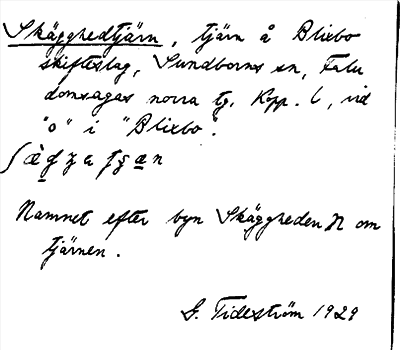 Skägghedtjärn, tjärn å Blixbo
skifteslag, Sundborns sn, Falu
domsagas norra tg. Kopp. l, vid
"o" i "Blixbo".
Namnet efter byn Skäggheden N om
tjärnen.
G. Tideström 1929